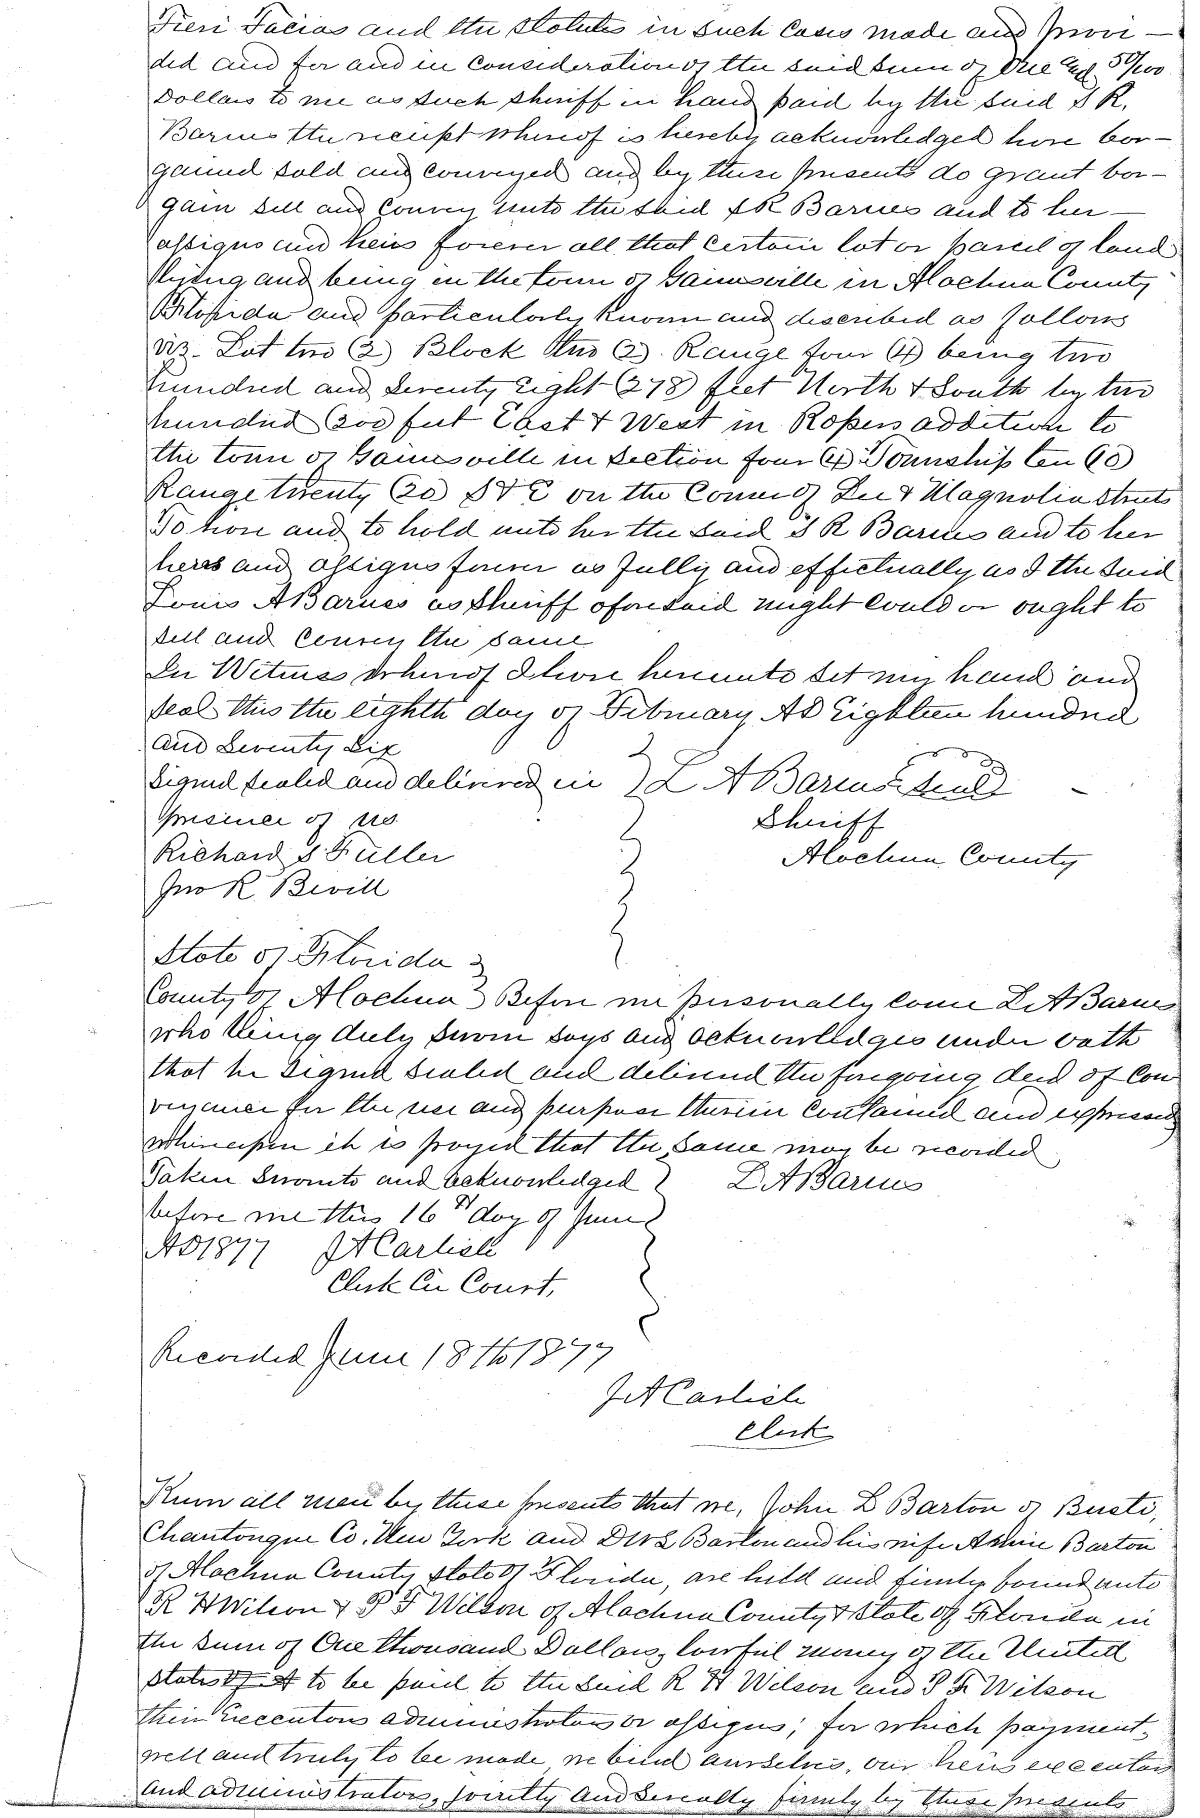 Fieri Facias and the statutes in such cases made and provi-
ded and for and in consideration of the said sum of One and 50/100
Dollars to me as such sheriff in hand paid by the said S R.
Barnes the reciept whereof is hereby acknowledged have bar-
gained sold and conveyed and by these presents do grant bar-
gain sell and convey unto the said S R Barnes and to her
assigns and heirs forever all that certain lot or parcel of land
lying and being in the town of Gainesville in Alachua County
Florida and particularly known and described as follows
viz. Lot two (2) Block two (2). Range four (4) being two
hundred and seventy eight (278) feet North & South by two
hundred (200 feet East & West in Ropers addition to
the town of Gainesville in Section four (4) Township ten (10)
Range twenty (20) S & E on the Corner of Lee & Magnolia Streets
To have and to hold unto her the said S R Barnes and to her
heirs and assigns forever as fully and effectually as I the said
Louis A Barnes as Sheriff aforesaid might could or ought to
sell and convey the same
In Witness whereof I have hereunto set my hand and
seal this the eighth day of February AD Eighteen hundred
and Seventy Six
Signed sealed and delivered in } L A Barnes Seal
presence of us
Sheriff
Richard S Fuller
Alachua County
Jno R Bevill
State of Florida }
County of Alachua } Before me personally came L A Barnes
who being duly sworn says and acknowledges under oath
that he signed sealed and delivered the foregoing deed of Con
veyance for the use and purpose therein contained and expressed
whereupon it is prayed that the same may be recorded
Taken Sworn to and acknowledged } L A Barnes
before me this 16th day of June
AD 1877 J A Carlisle
Clerk Cir Court,
Recorded June 18th 1877
J A Carlisle
Clerk
Know all men by these presents that we, John L Barton of Busti,
Chautauque Co. New York and D W L Barton and his wife Annie Barton
of Alachua County state of Florida, are held and firmly bound unto
R H Wilson & P F Wilson of Alachua County & State of Florida in
the sum of One thousand Dollars, lawful money of the United
States of A to be paid to the said R H Wilson and P F Wilson
their Executors administrators or assigns; for which payment,
well and truly to be made, we bind ourselves, our heirs executors
and administrators, jointly and severally firmly by these presents